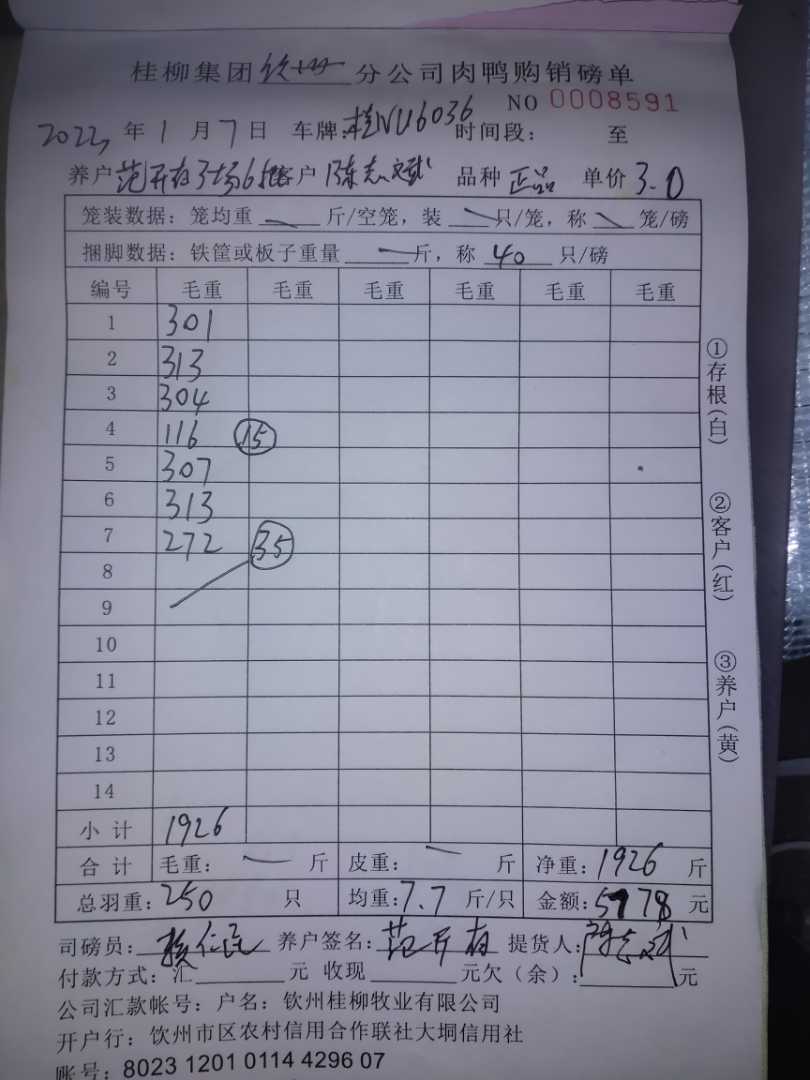 桂柳集团钦州分公司肉鸭购销磅单
NO 0008591
2022年1月7日 车牌:桂NU6036 时间段: 至
养户范开存3场6批客户陈志斌 品种 正品 单价 3.0
笼装数据: 笼均重 — 斤/空笼, 装 — 只/笼, 称 — 笼/磅
捆脚数据: 铁筐或板子重量 — 斤, 称 40 只/磅
编号 毛重 毛重 毛重 毛重 毛重 毛重
1 301
2 313
3 304
4 116 15
5 307
6 313
7 272 35
8
9
10
11
12
13
14
小计 1926
合计 毛重: — 斤 皮重: — 斤 净重: 1926 斤
总羽重: 250 只 均重: 7.7 斤/只 金额: 5778 元
司磅员: 养户签名: 范开存 提货人: 陈志斌
付款方式: 汇 元 收现 元欠(余): 元
公司汇款帐号: 户名: 钦州桂柳牧业有限公司
开户行: 钦州市区农村信用合作联社大垌信用社
账号: 8023 1201 0114 4296 07
①存根(白)
②客户(红)
③养户(黄)